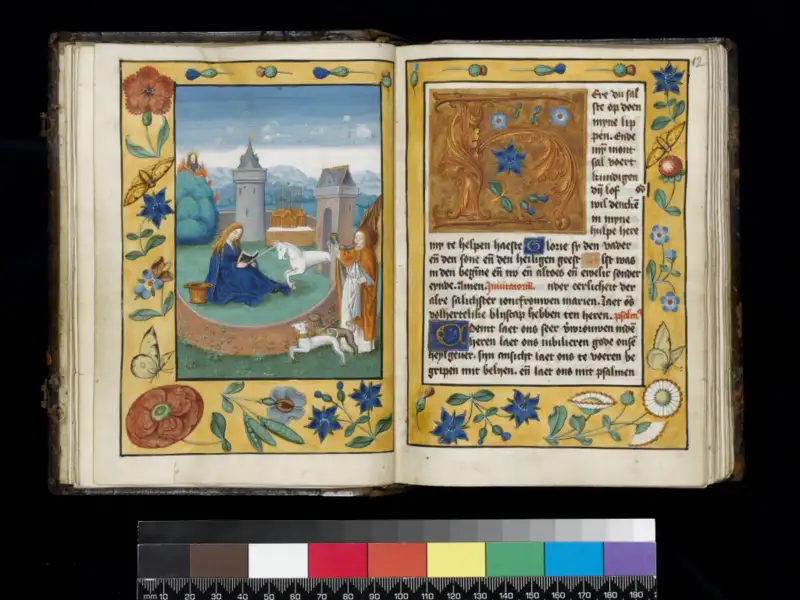 12
Ere du sal
ste op doen
myne lip
pen. Ende
myn mont
sal voert
kundigen
dijn lof
wil dencken
in myne
hulpe here
my te helpen haeste Glorie sy den vader
en̄ den sone en̄ den heiligen geest Alst was
in den beginē en̄ nv en̄ altoes en̄ ewelic sonder
eynde. Amen. Inuitatoriū. nder eerlicheit der
alre salichster ioncfrouwen marien. Laet ōs
volhertelike bliscap hebben ten heren. psalm
Coemt laet ons seer verurouwen inden
heren laet ons iubilieren gode onsē
heylgeuer. sijn ansicht laet ons te voeren be
gripen mit belyen. en̄ laet ons mit psalmen
mm 10 20 30 40 50 60 70 80 90 100 110 120 130 140 150 160 170 180 190